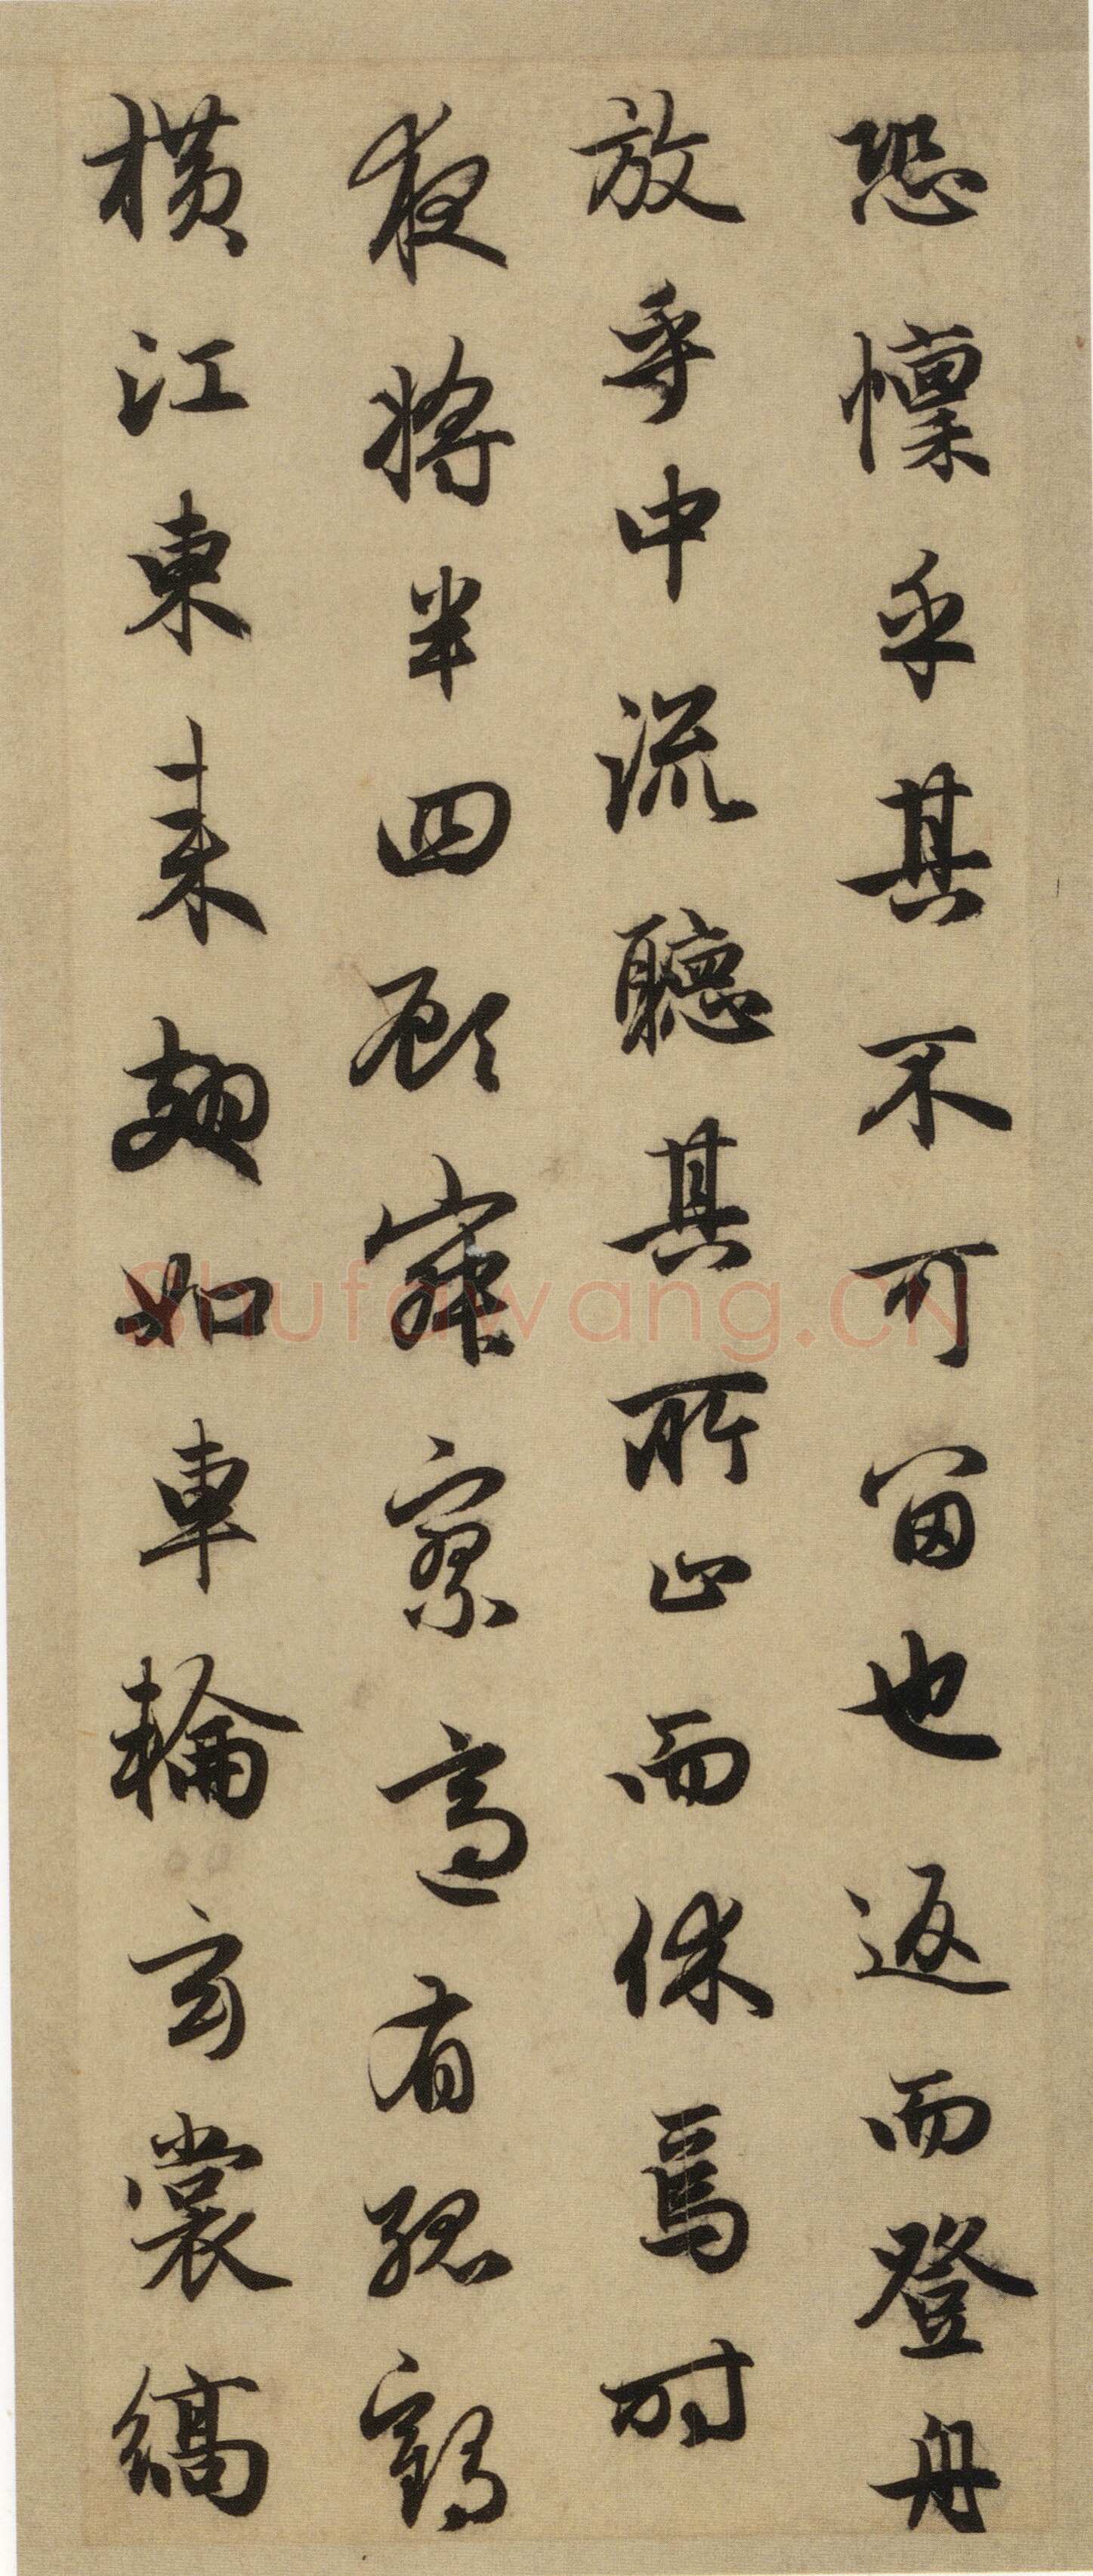 恐懔乎其不可留也返而登舟
放乎中流聽其所止而休焉时
夜将半四顾寂寥適有孤鶴
横江東来翅如車輪玄裳縞
Shufawang.CN